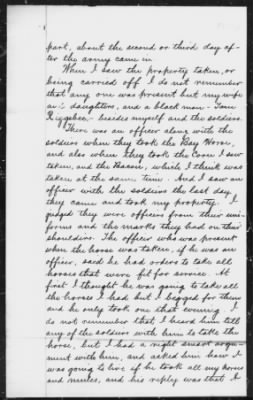 part, about the second or third day af-
ter the army came in
When I saw the property taken, or
being carried off I do not remember
that any one was present but my wife
and daughters, and a black man - Tom
besides myself and the soldiers
There was an officer along with the
soldiers when they took the Bay Horse,
and also when they took the Corn I saw
taken, and the which I think was
taken at the same time. And I saw an
officer with the soldiers the last day
they came and took my property. I
judged they were officers from their uni-
forms and the marks they had on their
shoulders. The officer who was present
when the horse was taken, if he was an
officer, said he had orders to take all
horses that were fit for service. At
first I thought he was going to take all
the horses I had but I begged for them
and he only took one that evening. I
do not remember that I heard him tell
any of the soldiers with him to take the
horse, but I had a right smart argu-
ment with him, and asked him how I
was going to live if he took all my horses
and mules, and his reply was that I